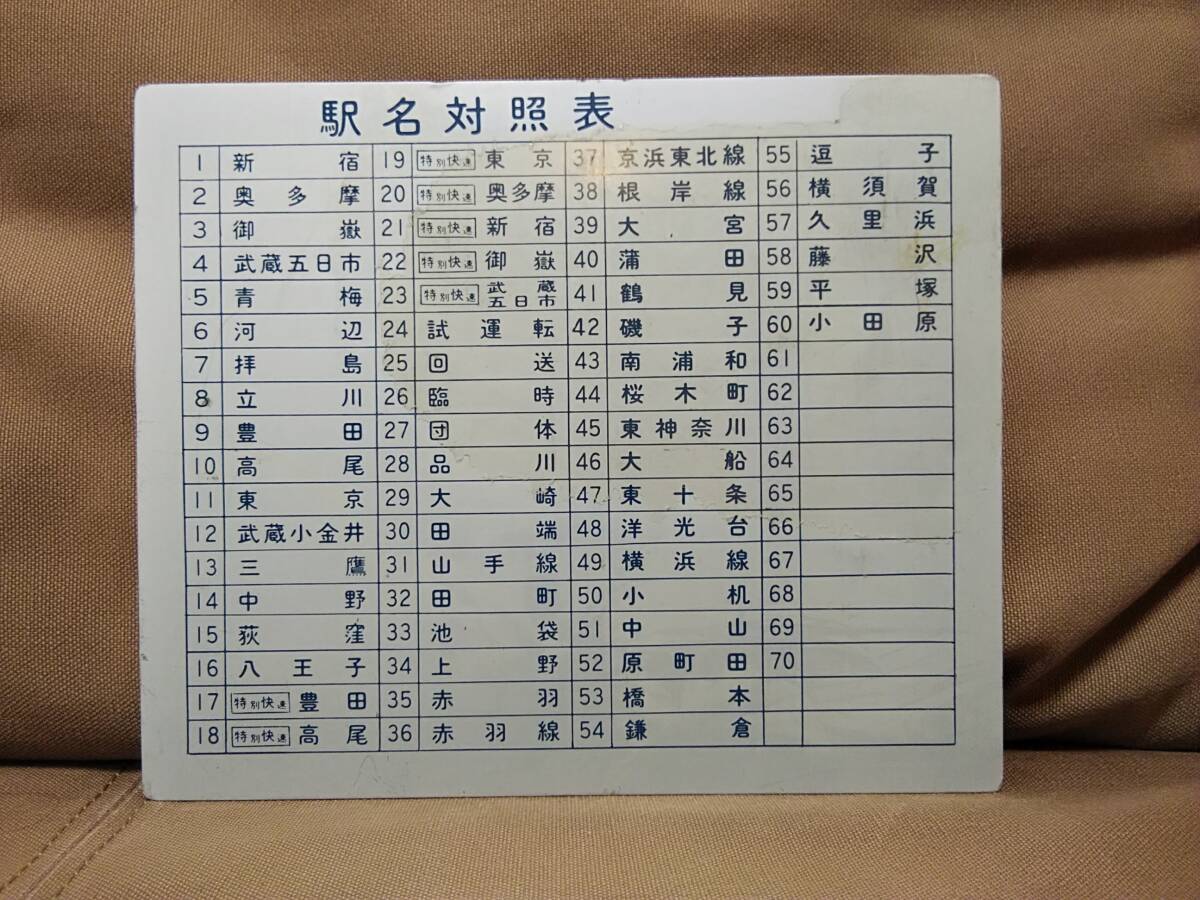 駅名対照表
1 新宿 19 特別快速 東京 37 京浜東北線 55 逗子
2 奥多摩 20 特別快速 奥多摩 38 根岸線 56 横須賀
3 御嶽 21 特別快速 新宿 39 大宮 57 久里浜
4 武蔵五日市 22 特別快速 御嶽 40 蒲田 58 藤沢
5 青梅 23 特別快速 武蔵五日市 41 鶴見 59 平塚
6 河辺 24 試運転 42 磯子 60 小田原
7 拝島 25 回送 43 南浦和 61
8 立川 26 臨時 44 桜木町 62
9 豊田 27 団体 45 東神奈川 63
10 高尾 28 品川 46 大船 64
11 東京 29 大崎 47 東十条 65
12 武蔵小金井 30 田端 48 洋光台 66
13 三鷹 31 山手線 49 横浜線 67
14 中野 32 田町 50 小机 68
15 荻窪 33 池袋 51 中山 69
16 八王子 34 上野 52 原町田 70
17 特別快速 豊田 35 赤羽 53 橋本
18 特別快速 高尾 36 赤羽線 54 鎌倉